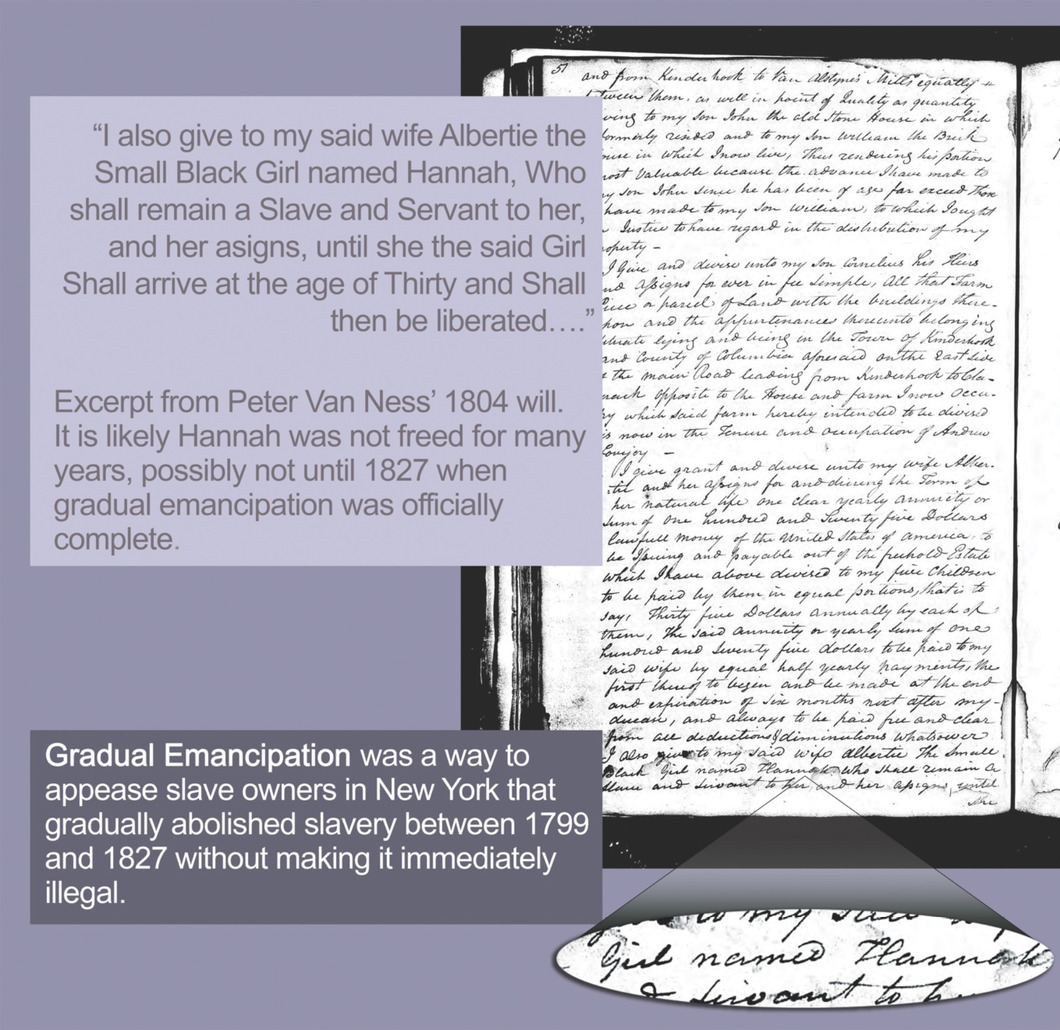 “I also give to my said wife Albertie the
Small Black Girl named Hannah, Who
shall remain a Slave and Servant to her,
and her asigns, until she the said Girl
Shall arrive at the age of Thirty and Shall
then be liberated….”
Excerpt from Peter Van Ness’ 1804 will.
It is likely Hannah was not freed for many
years, possibly not until 1827 when
gradual emancipation was officially
complete.
Gradual Emancipation was a way to
appease slave owners in New York that
gradually abolished slavery between 1799
and 1827 without making it immediately
illegal.
51
and from Kinderhook to Van Alstynes Mills equally
between them, as well in point of Quality as quantity
ving to my son John the old Stone House in which
formerly resided and to my son William the Brick
ouse in which I now live, Thus rendering his portion
most Valuable because the advance I have made to
my son John since he has been of age far exceed those
have made to my son William, to which I ought
in Justice to have regard in the distribution of my
operty –
I Give and devise unto my son Cornelius his Heirs
and assigns for ever in fee simple, All that Farm
piece or parcel of Land with the buildings there-
hon and the appurtenances thereunto belonging
situate lying and being in the Town of Kinderhook
and County of Columbia aforesaid on the East side
the main Road leading from Kinderhook to Cla-
rack opposite to the House and farm I now occu-
py which said farm hereby intended to be divised
is now in the Tenure and occupation of Andrew
Lovejoy –
I give grant and devise unto my wife Alber-
tie and her assigns for and during the Term of
her natural life one clear yearly annuity or
sum of one hundred and Seventy five Dollars
lawfull money of the United States of america, to
be Issuing and payable out of the freehold Estate
which I have above devised to my five Children
to be paid by them in equal portions, that is to
say; Thirty five Dollars annually by each of
them, The said annuity or yearly sum of one
hundred and seventy five dollars to be paid to my
said wife by equal half yearly payments, the
first thereof to begin and be made at the end
and expiration of six months next after my
decease, and always to be paid free and clear
from all deductions & diminutions whatsoever
I also give to my said wife Albertie the Small
Black Girl named Hannah who shall remain a
slave and servant to her, and her assigns, until
she
to my said
Girl named Hannah
& servant to